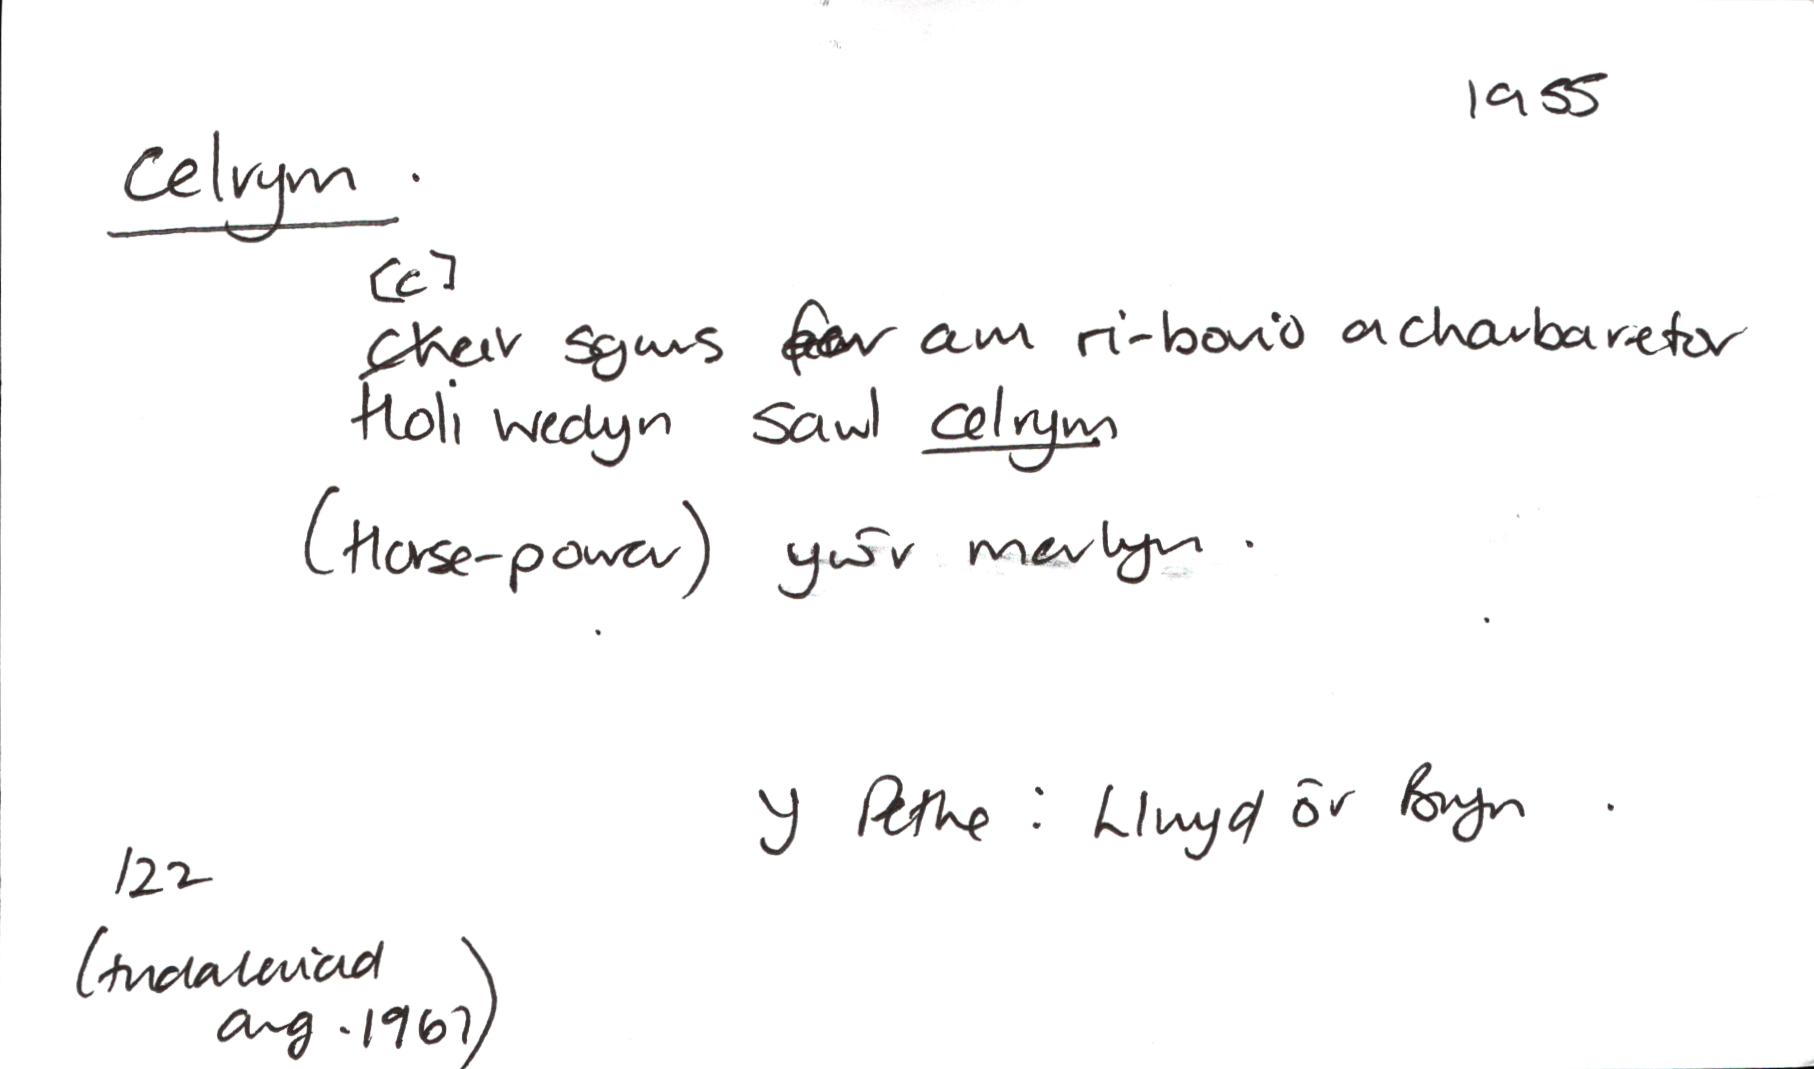 1955
Celrym.
[c]
cheir sgwrs am ri-borio a charbaretor
Holi wedyn sawl celrym
(Horse-power) yw'r merlyn.
Y Pethe : Llwyd o'r Bryn.
122
(tudaleniad
arg. 1967)